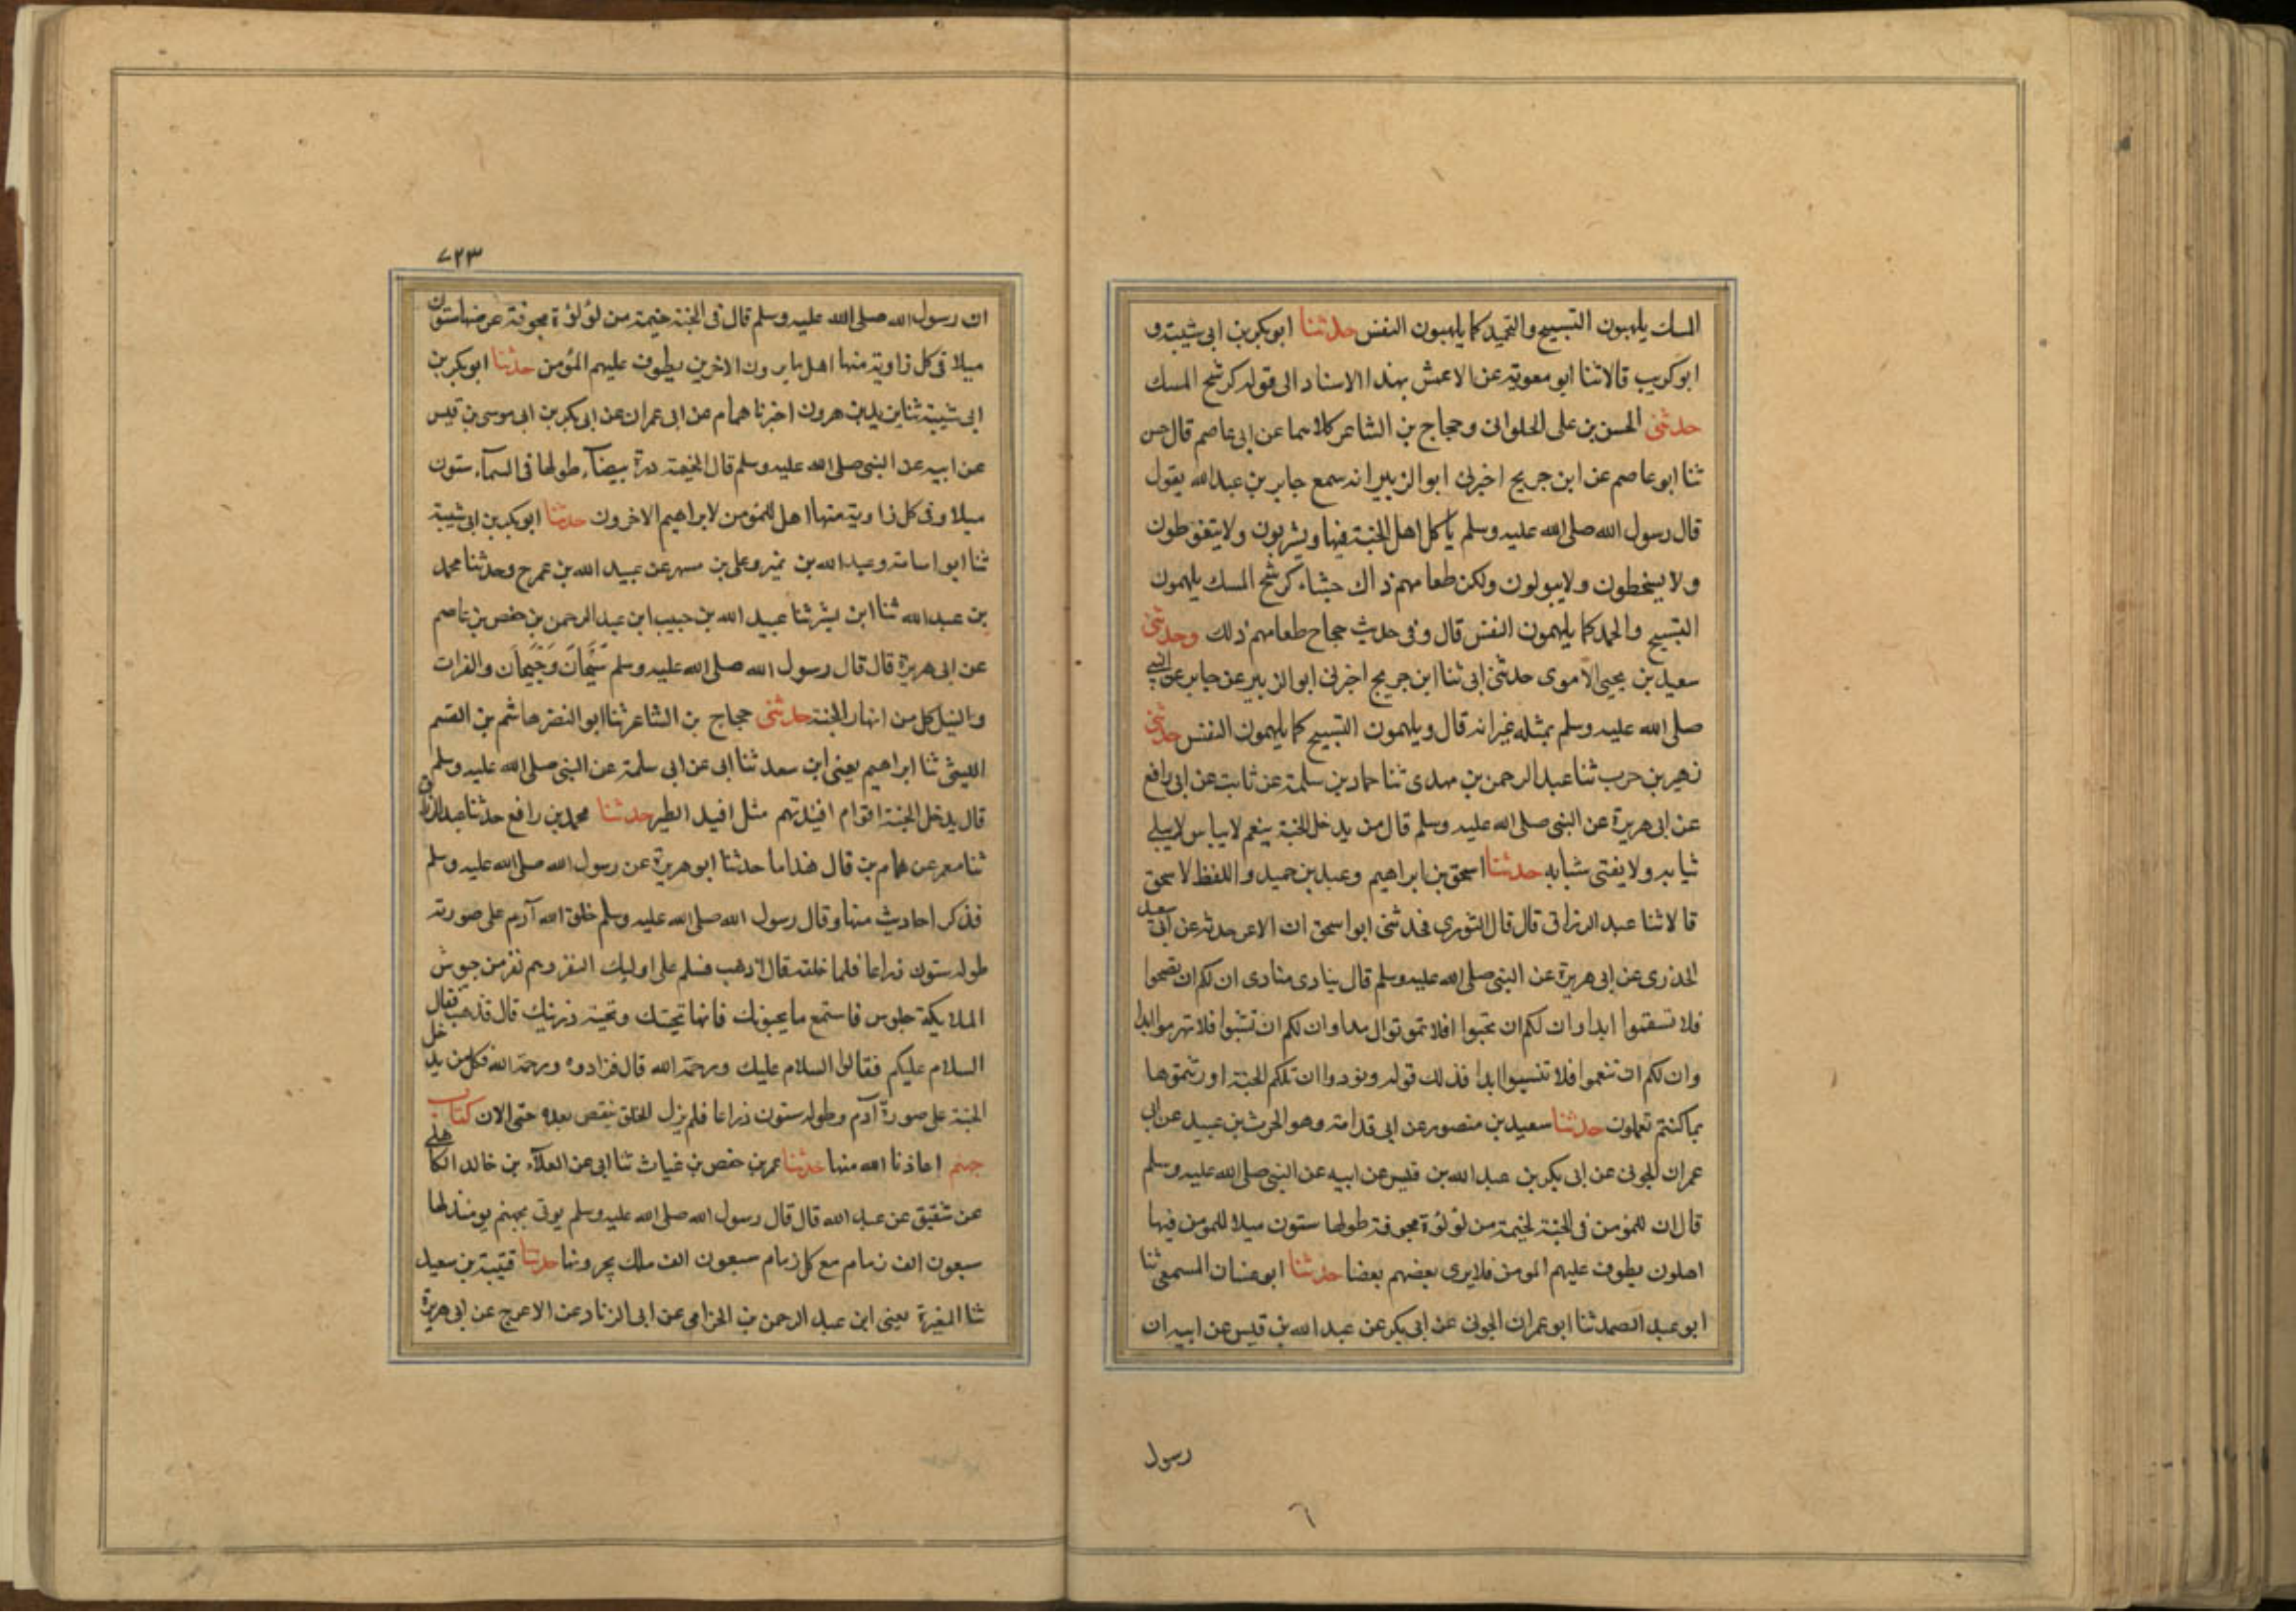 المسك يلهمون التسبيح والتحميد كما يلهمون النفس حدثنا ابو بكر بن ابي شيبة و
ابو كريب قالا ثنا ابو معوية عن الاعمش بهذا الاسناد الى قوله كرشح المسك
حدثنى الحسن بن على الحلوانى وحجاج بن الشاعر كلاهما عن ابى عاصم قال حسن
ثنا ابو عاصم عن ابن جريج اخبرنى ابو الزبير انه سمع جابر بن عبد الله يقول
قال رسول الله صلى الله عليه وسلم يأكل اهل الجنة فيها ويشربون ولا يتغوطون
ولا يمخطون ولا يبولون ولكن طعامهم ذاك جشاء كرشح المسك يلهمون
التسبيح والحمد كما يلهمون النفس قال وفى حديث حجاج طعامهم ذلك وحدثنى
سعيد بن يحيى الاموى حدثنى ابى ثنا ابن جريج اخبرنى ابو الزبير عن جابر عن النبى
صلى الله عليه وسلم بمثله غير انه قال ويلهمون التسبيح كما يلهمون النفس حدثنى
زهير بن حرب ثنا عبد الرحمن بن مهدى ثنا حماد بن سلمة عن ثابت عن ابى رافع
عن ابى هريرة عن النبى صلى الله عليه وسلم قال من يدخل الجنة ينعم لا يباس لا يبلى
ثيابه ولا يفنى شبابه حدثنا اسحق بن ابراهيم وعبد بن حميد واللفظ لاسحق
قالا ثنا عبد الرزاق قال قال الثورى فحدثنى ابو اسحق ان الاغر حدثه عن ابى سعيد
الخدرى عن ابى هريرة عن النبى صلى الله عليه وسلم قال ينادى منادى ان لكم ان تصحوا
فلا تسقموا ابدا وان لكم ان تحيوا افلا تموتوا ابدا وان لكم ان تشبوا فلا تهرموا ابدا
وان لكم ان تنعموا فلا تنسبوا ابدا فذلك قوله ونودوا ان تلكم الجنة اورثتموها
بما كنتم تعملون حدثنا سعيد بن منصور عن ابى قدامة وهو الحرث بن عبيد عن ابى
عمران الجونى عن ابى بكر بن عبد الله بن قيس عن ابيه عن النبى صلى الله عليه وسلم
قال ان للمؤمن فى الجنة لخيمة من لؤلؤة مجوفة طولها ستون ميلا للمومن فيها
اهلون يطوف عليهم المومن فلا يرى بعضهم بعضا حدثنا ابو غسان المسمعى ثنا
ابو عبد الصمد ثنا ابو عمران الجونى عن ابى بكر عن عبد الله بن قيس عن ابيه ان
رسول
٧٢٣
ان رسول الله صلى الله عليه وسلم قال فى الجنة خيمة من لؤلؤة مجوفة عرضها ستون
ميلا فى كل زاوية منها اهل ما يرون الاخرين يطوف عليهم المؤمن حدثنا ابو بكر بن
ابى شيبة ثنا يزيد بن هرون اخبرنا همام عن ابى عمران عن ابى بكر بن ابى موسى بن قيس
عن ابيه عن النبى صلى الله عليه وسلم قال الخيمة درة بيضآء طولها فى السمآء ستون
ميلا وفى كل زاوية منها اهل للمؤمن لا يراهيم الاخرون حدثنا ابو بكر بن ابى شيبة
ثنا ابو اسامة وعبد الله بن نمير وعلى بن مسهر عن عبيد الله بن عمر ح وحدثنا محمد
بن عبد الله ثنا ابن بشر ثنا عبيد الله بن حبيب ابن عبد الرحمن بن حفص بن عاصم
عن ابى هريرة قال قال رسول الله صلى الله عليه وسلم سَيْحَان وَجَيْحَان والفرات
والنيل كل من انهار الجنة حدثنى حجاج بن الشاعر ثنا ابو النضر هاشم بن القسم
الليثى ثنا ابراهيم يعنى ابن سعد ثنا ابى عن ابى سلمة عن النبى صلى الله عليه وسلم
قال يدخل الجنة اقوام افئدتهم مثل افيد الطير حدثنا محمد بن رافع حدثنا عبد الرزاق
ثنا معمر عن همام بن قال هذا ما حدثنا ابو هريرة عن رسول الله صلى الله عليه وسلم
فذكر احاديث منها وقال رسول الله صلى الله عليه وسلم خلق الله آدم على صورته
طوله ستون ذراعا فلما خلقه قال اذهب فسلم على اوليك النفر وهم نفر من
الملايكة جلوس فاستمع ما يحيونك فانها تحيتك وتحية ذريتك قال فذهب فقال
السلام عليكم فقالوا السلام عليك ورحمة الله قال فزادوه ورحمة الله فكل من يدخل
الجنة على صورة آدم وطوله ستون ذراعا فلم يزل الخلق ينقص بعده حتى الان كتاب
جهنم اعاذنا الله منها حدثنا عمر بن حفص بن غياث ثنا ابى عن العلآء بن خالد الكاهلى
عن شقيق عن عبد الله قال قال رسول الله صلى الله عليه وسلم يوتى بجهنم يومئذ لها
سبعون الف زمام مع كل زمام سبعون الف ملك يجرونها حدثنا قتيبة بن سعيد
ثنا المغيرة يعنى ابن عبد الرحمن بن الحزامى عن ابى الزناد عن الاعرج عن ابى هريرة